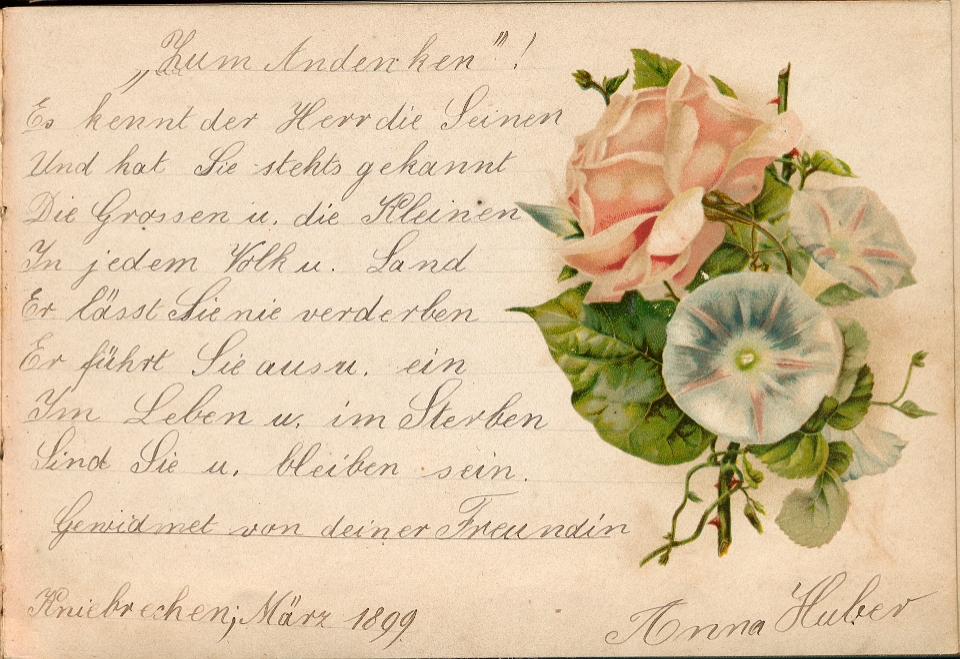 „Zum Andencken"!
Es kennt der Herr die Seinen
Und hat Sie stehts gekannt
Die Grossen u. die Kleinen
In jedem Volk u. Land
Er lässt Sie nie verderben
Er führt Sie aus u. ein
Im Leben u. im Sterben
Sind Sie u. bleiben sein.
Gewidmet von deiner Freundin
Kniebrechen, März 1899
Anna Huber